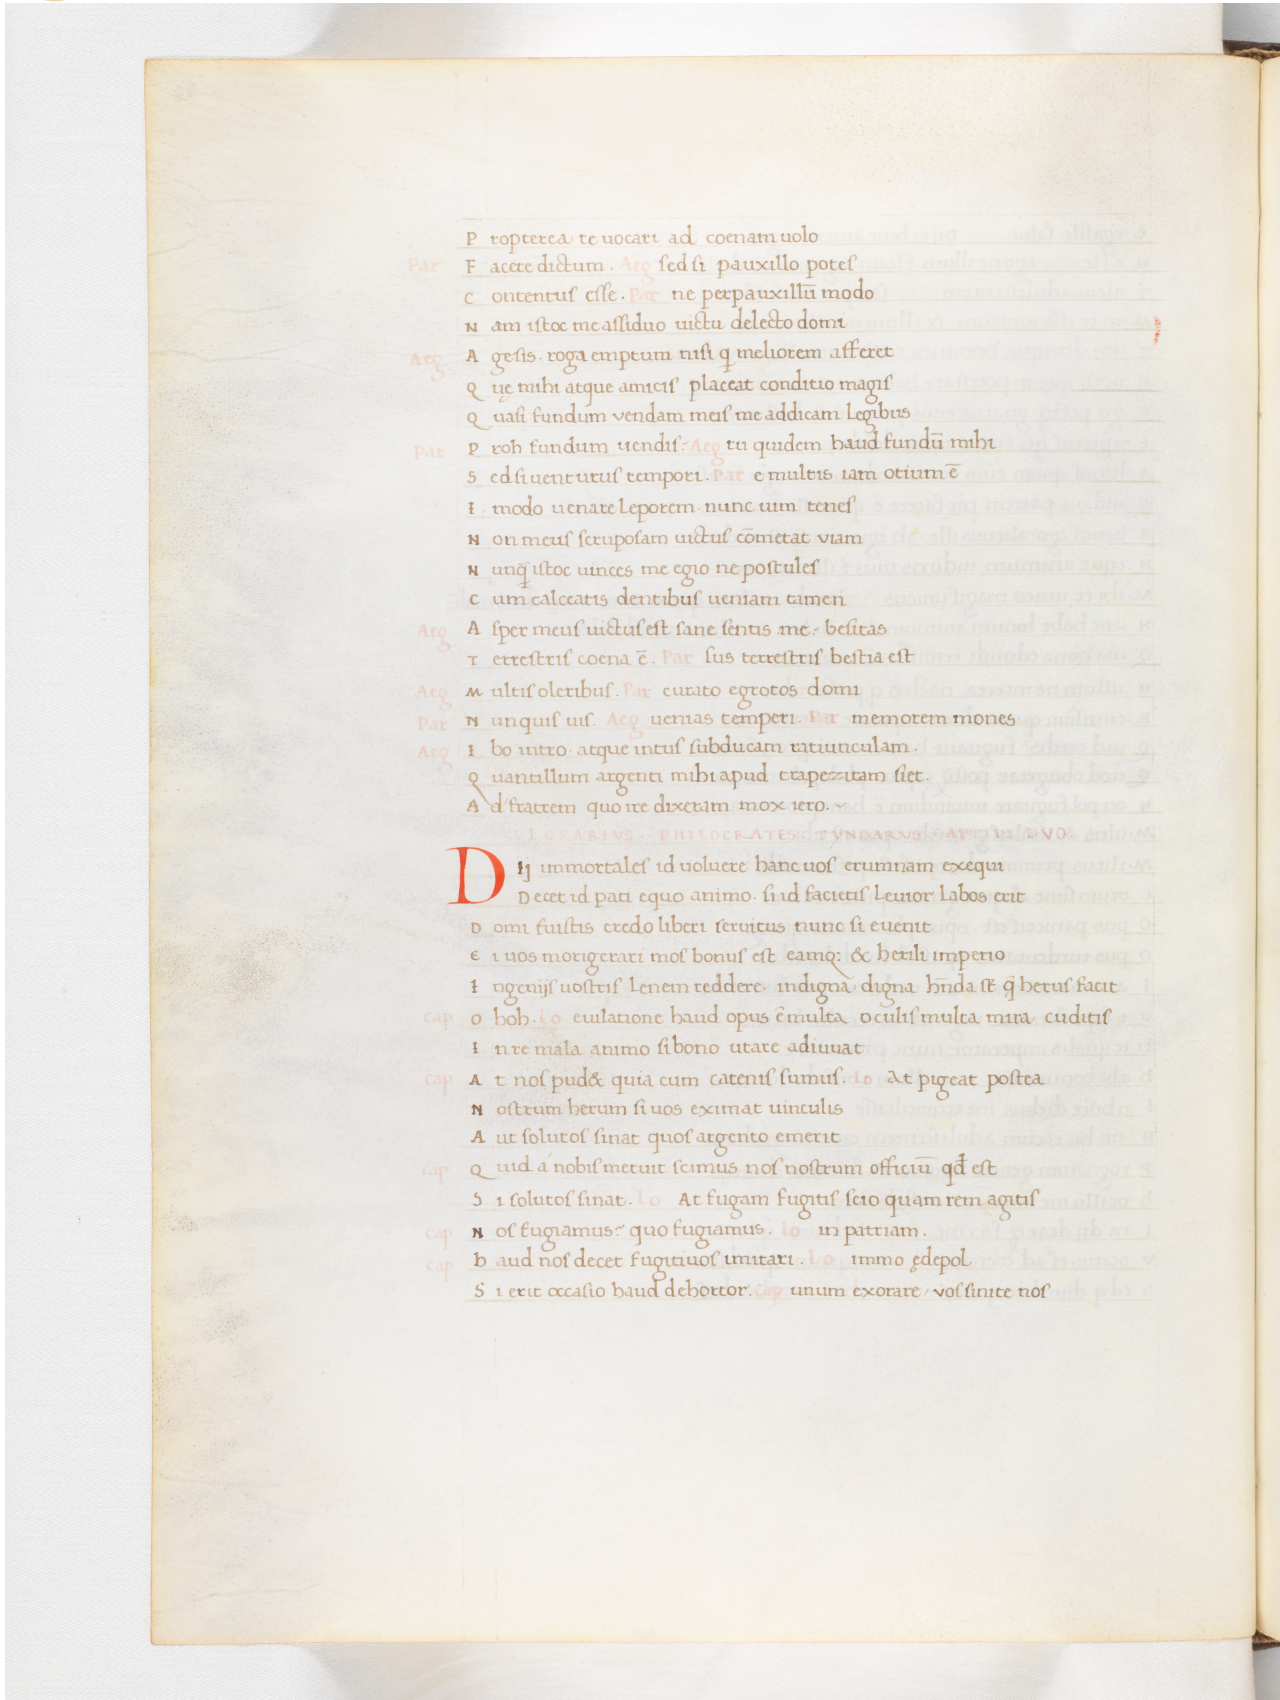 Propterea te uocari ad coenam uolo
Par Facete dictum. Aeg sed si pauxillo potes
Contentus esse. Par ne perpauxillū modo
Nam istoc me assiduo uictu delecto domi
Aeg Agesis. roga emptum nisi q meliorem afferet
Quę mihi atque amicis placeat conditio magis
Quasi fundum vendam meis me addicam legibus
Par Proh fundum uendis: Aeg tu quidem haud fundū mihi
Sed si uenturus tempori. Par e multis iam otium ē
I modo uenare leporem nunc uim tenes
Non meus scruposam uictus cōmetat viam
Nunq̄ istoc uinces me egio ne postules
Cum calceatis dentibus ueniam tamen
Aeg Asper meus uictus est sane sentis me. besitas
Terrestris coena ē. Par sus terrestris bestia est
Aeg Multis oleribus. Par curato egrotos domi
Par Nunquis uis. Aeg uenias temperi. Par memorem mones
Aeg Ibo intro. atque intus subducam ratiunculam.
Quantillum argenti mihi apud trapezzitam siet.
Ad fratrem quo ire dixeram mox iero.
LORARIVS. PHILOCRATES TVNDARVS CAPTIVI DVO
Dij immortales id uoluere hanc uos erumnam exequi
Decet id pati equo animo. si id facietis leuior labos erit
Domi fuistis credo liberi seruitus nunc si evenit
Ei uos morigerari mos bonus est eamq: & herili imperio
Ingenijs uostris lenem reddere. indigna digna hn̄da st̄ q̄ herus facit
cap Ohoh. Lo eiulatione haud opus ē multa oculis multa mira cuditis
In re mala animo si bono utare adiuuat
cap At nos pud& quia cum catenis sumus. Lo At pigeat postea
Nostrum herum si uos eximat uinculis
Aut solutos sinat quos argento emerit
cap Quid a nobis metuit scimus nos nostrum officiū qd̄ est
Si solutos sinat. Lo At fugam fugitis scio quam rem agitis
cap Nos fugiamus: quo fugiamus. Lo in patriam.
cap haud nos decet fugitiuos imitari. Lo immo ędepol
Si erit occasio haud dehortor. Cap unum exorare / vos sinite nos